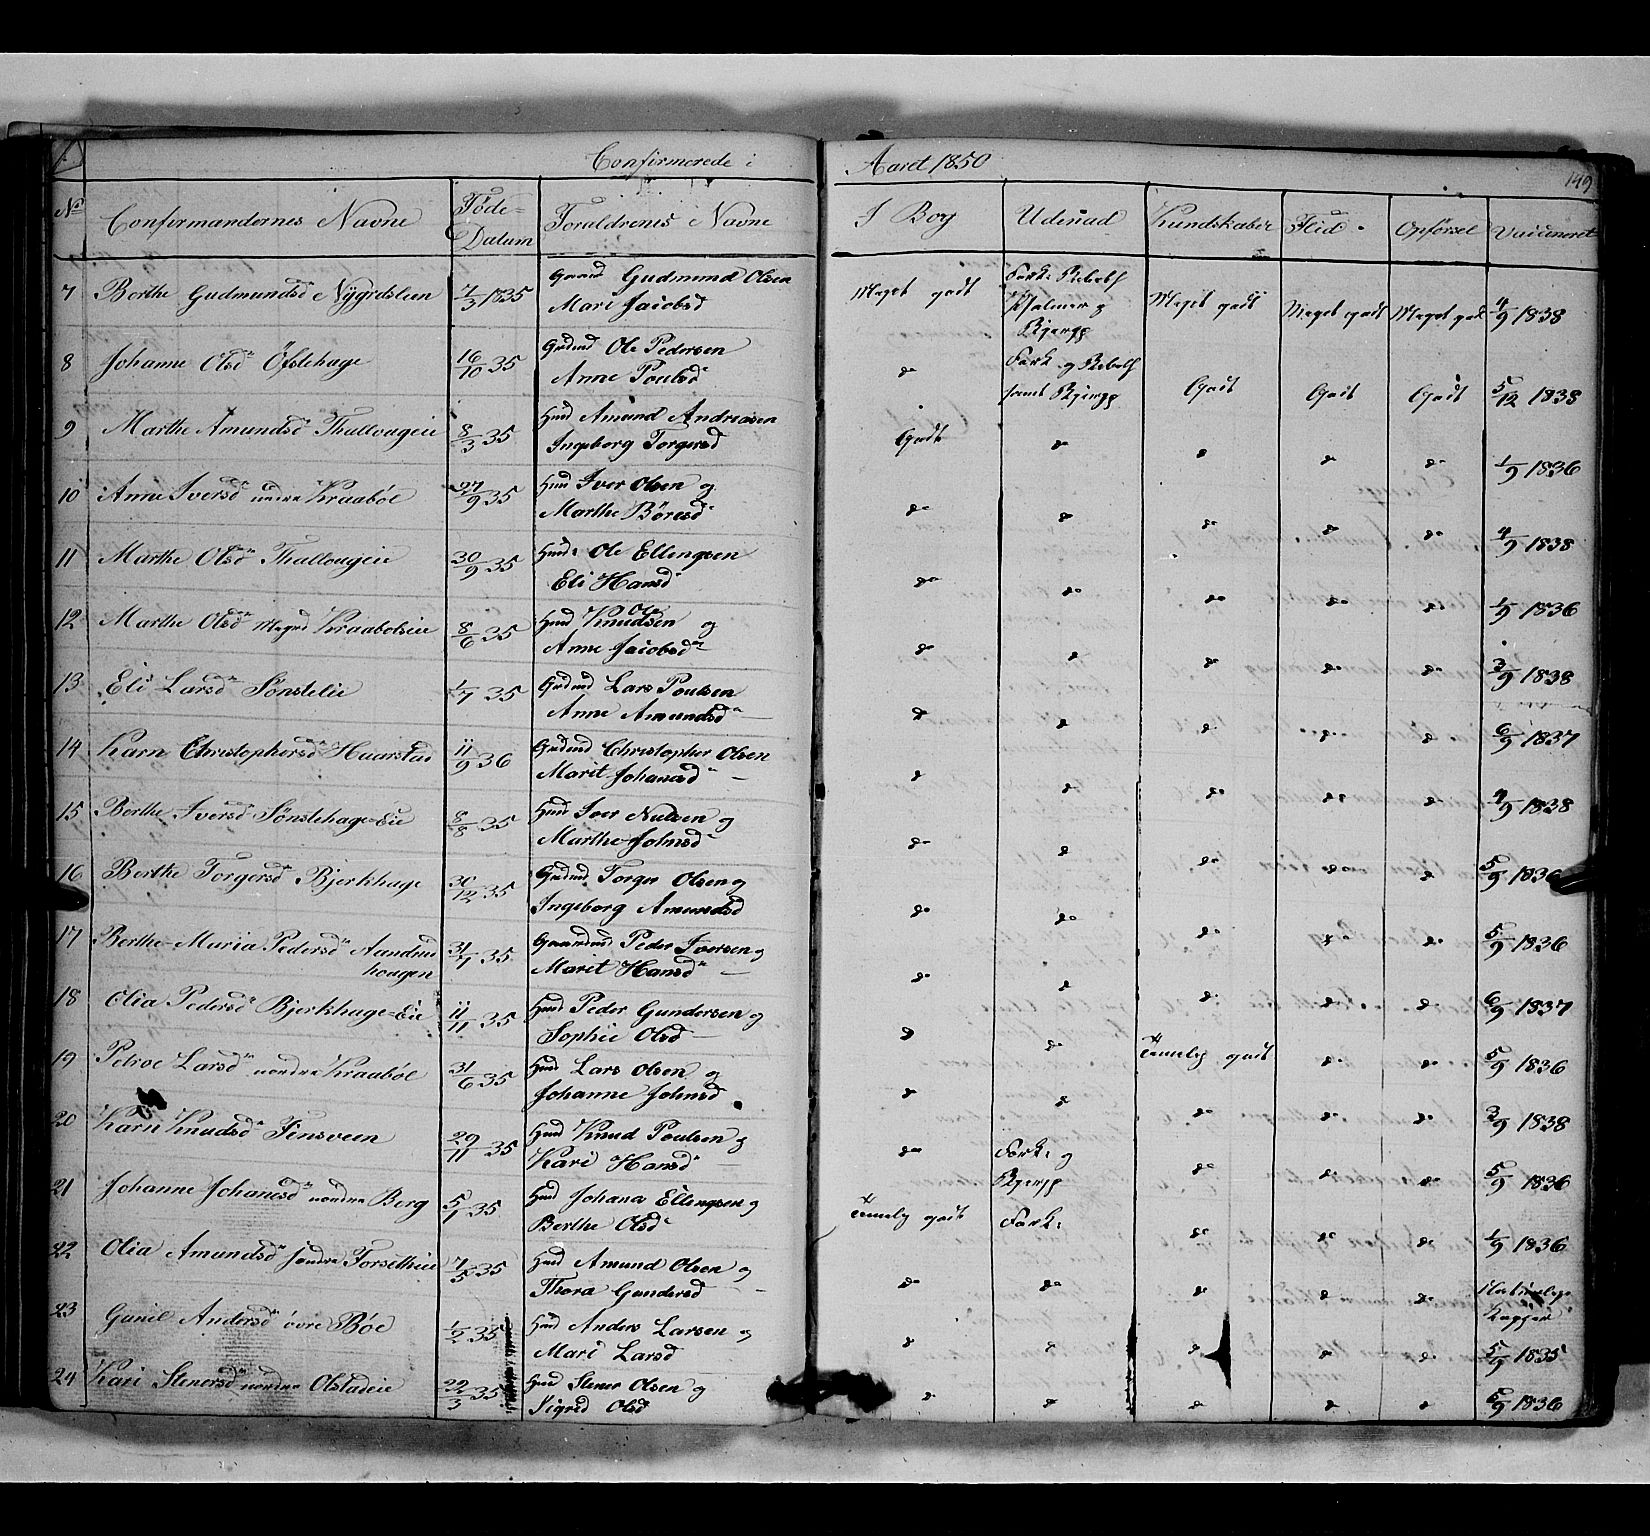 Confirmerede i Aaret 1850
149
No Confirmandernes Navne Føde-Datum Forældrenes Navne I Bog Udenad Kundskaber Flid Opførsel Vaccineret
7 Berthe Gudmundsd 7/3 1835 Gudmund Olsen Mari Jacobsd Meget godt Psalmer og Meget godt Meget godt Meget godt 4/9 1838
8 Johanne Olsd Öfstehage 16/10 35 Ole Pedersen Anne Poulsd do Godt Godt Godt 5/12 1838
9 Marthe Amundsd Thallougeie 8/3 35 Huusmd Amund Andreasen Ingeborg Torgersd Godt do do do do 1/9 1836
10 Anne Iversd nordre Kraabøl 27/9 35 Huusmd Iver Olsen og Marthe Böresd do do do do do 4/9 1838
11 Marthe Olsd Thallougeie 30/9 35 Ole Ellengsen Eli Hansd do do do do do 1/9 1836
12 Marthe Olsd Kraabøleie 8/6 35 Ole Knudsen og Anne Jacobsd do do do do do 3/9 1838
13 Eli Larsd Sønstelie 1/7 35 Lars Poulsen Anne Amundsd do do do do do 6/9 1837
14 Karn Christophersd Haarstad 11/9 36 Christopher Olsen Marit Johansd do do do do do 4/9 1838
15 Berthe Iversd Sønstehage-Eie 8/8 35 Iver og Marthe Johnsd do do do do do 5/9 1836
16 Berthe Torgersd Bjerkhage 30/12 35 Torger Olsen og Ingeborg Amundsd do do do do do 5/9 1836
17 Berthe Maria Pedersd 31/7 35 Peder Iversen og Marit Hansd do do do do do 6/9 1837
18 Olia Pedersd Bjerkhage-Eie 11/11 35 Peder Gundersen og Sophie Olsd do do do do 5/9 1836
19 Larsd nordre Kraabøl 31/6 35 Lars Olsen og Johanne Johnsd do do temelig godt do do 3/9 1838
20 Karn Knudsd Finsveen 29/11 35 Knud Poulsen og Kari Hansd do og do do do 5/9 1836
21 Johanne Johansd nordre Berg 5/1 35 Johans Ellengsen og Berthe Olsd temelig godt do do do 1/9 1836
22 Olia Amundsd søndre Forsetheie 7/5 35 Amund Olsen og Thora Gundersd do do do do do
23 Gunil Andersd övre Bøe 1/2 35 Anders Larsen og Mari Larsd do do do do do 5/9 1835
24 Kari Stenersd nordre Olstadeie 22/3 35 Stener Olsen og Sigrid Olsd do do do do do 5/9 1836